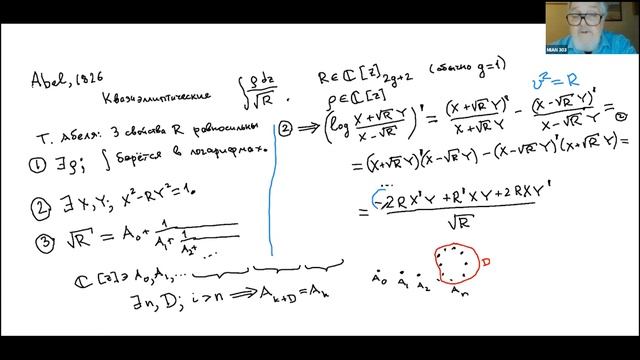 Abel, 1826
Квазиэллиптические ∫ ρ dz / √R .
R ∈ ℂ[z]₂g+2 (обычно g=1)
ρ ∈ ℂ[z]
v² = R
Т. Абеля: 3 свойства R равносильны
① ∃ρ; ∫ берётся в логарифмах.
② ∃ X, Y; X² − RY² = 1.
③ √R = A₀ + 1/(A₁ + 1/(A₂ + ...
ℂ[z] ∋ A₀, A₁, ...
∃ n, D; i > n ⟹ A_{k+D} = A_k
② ⟹ (log (X+√R Y)/(X−√R Y))' = (X+√R Y)'/(X+√R Y) − (X−√R Y)'/(X−√R Y) = ②
= (X+√R Y)'(X−√R Y) − (X−√R Y)'(X+√R Y) =
= (−2RX'Y + R'XY + 2RXY')/√R
A₀ A₁ A₂ Aₙ D
MIAN 303